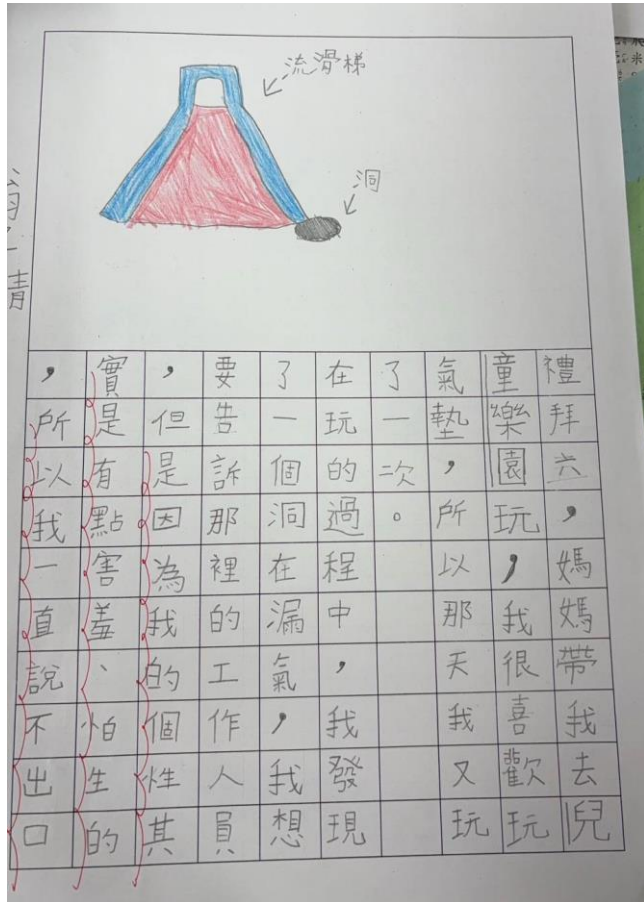 流滑梯
洞
禮拜六，媽媽帶我去兒
童樂園玩，我很喜歡玩
氣墊，所以那天我又玩
了一次。
在玩的過程中，我發現
了一個洞在漏氣，我想
要告訴那裡的工作人員
，但是因為我的個性其
實是有點害羞、怕生的
，所以我一直說不出口